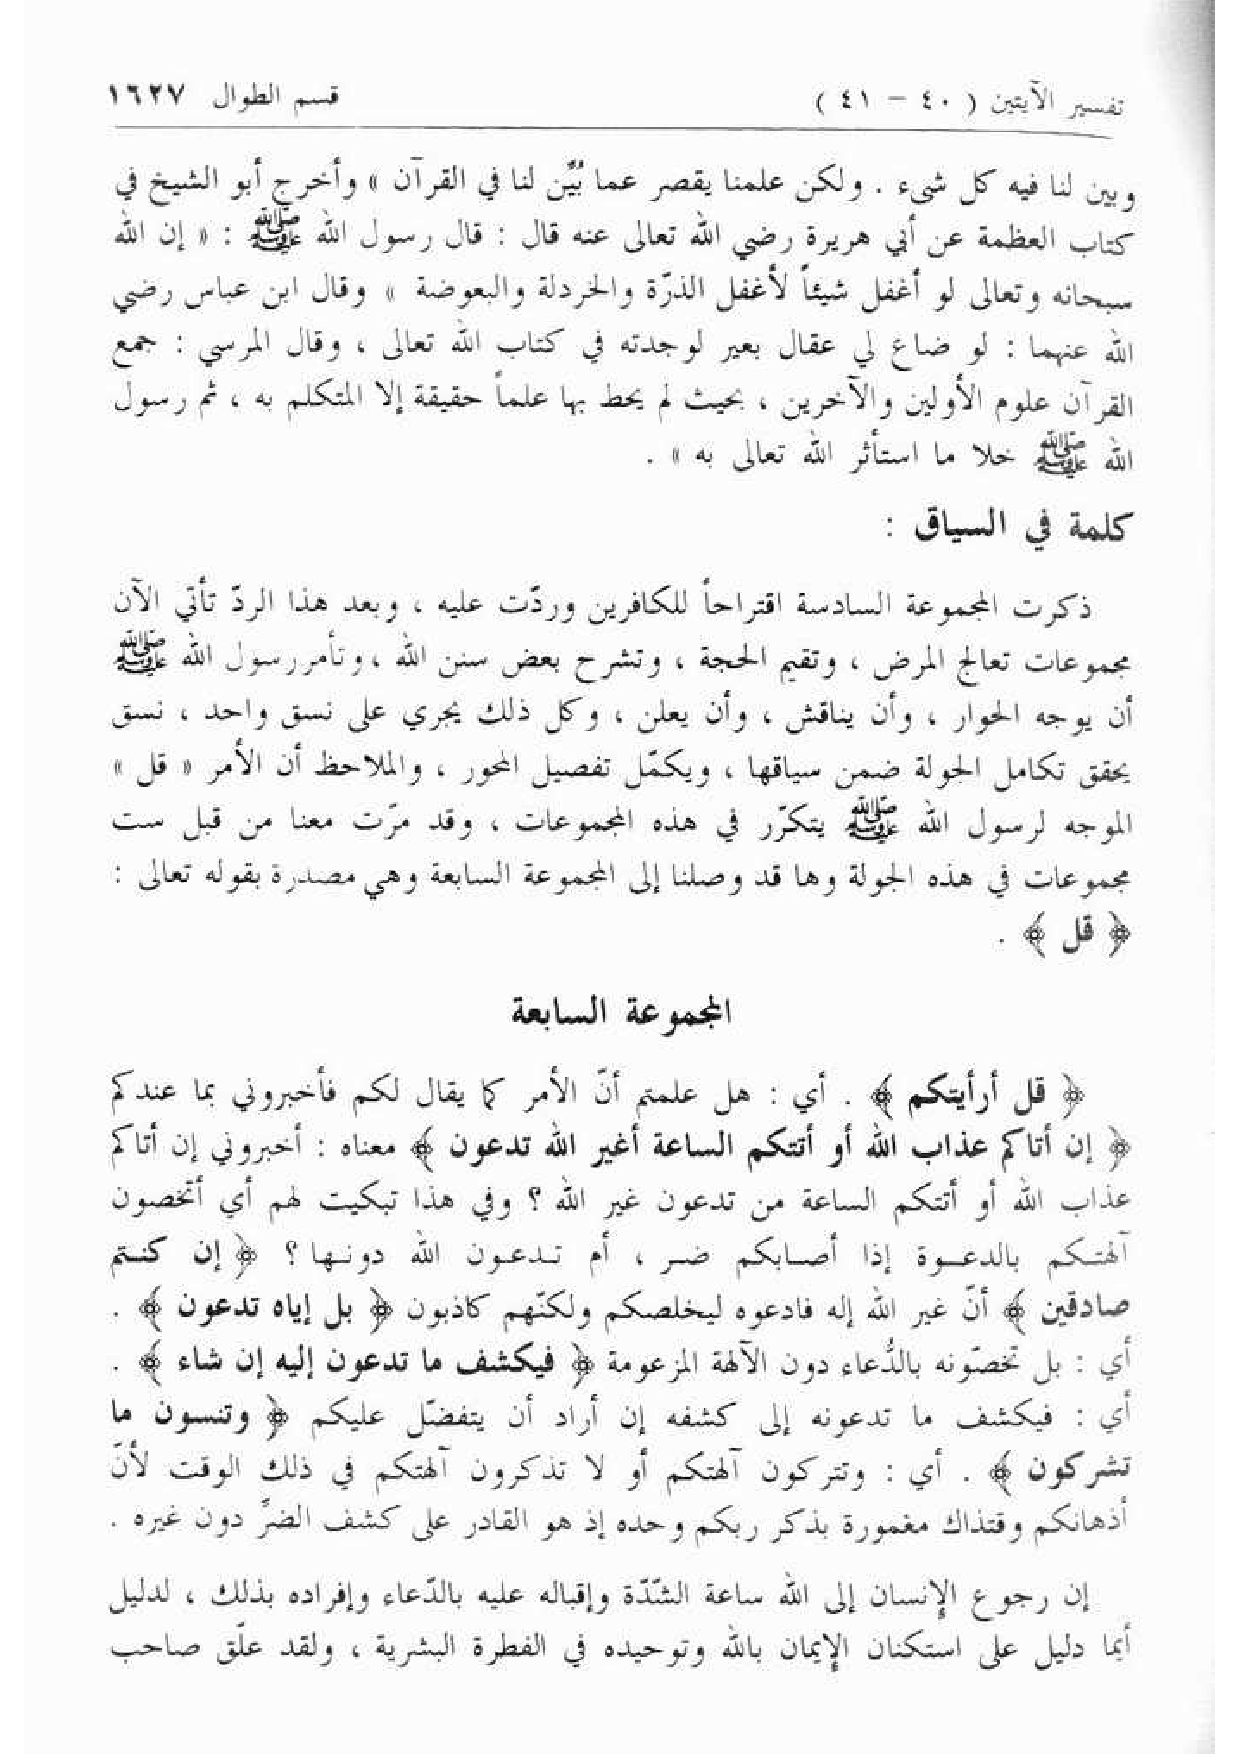 تفسير الآيتين ( ٤٠ - ٤١ ) قسم الطوال ١٦٢٧
وبين لنا فيه كل شيء . ولكن علمنا يقصر عما بُيّن لنا في القرآن » وأخرج أبو الشيخ في
كتاب العظمة عن أبي هريرة رضي الله تعالى عنه قال : قال رسول الله ﷺ : « إن الله
سبحانه وتعالى لو أغفل شيئاً لأغفل الذرّة والخردلة والبعوضة » وقال ابن عباس رضي
الله عنهما : لو ضاع لي عقال بعير لوجدته في كتاب الله تعالى ، وقال المرسي : جمع
القرآن علوم الأولين والآخرين ، بحيث لم يحط بها علماً حقيقة إلا المتكلم به ، ثم رسول
الله ﷺ خلا ما استأثر الله تعالى به » .
كلمة في السياق :
ذكرت المجموعة السادسة اقتراحاً للكافرين وردّت عليه ، وبعد هذا الردّ تأتي الآن
مجموعات تعالج المرض ، وتقيم الحجة ، وتشرح بعض سنن الله ، وتأمر رسول الله ﷺ
أن يوجه الحوار ، وأن يناقش ، وأن يعلن ، وكل ذلك يجري على نسق واحد ، نسق
يحقق تكامل الجولة ضمن سياقها ، ويكمّل تفصيل المحور ، والملاحظ أن الأمر « قل »
الموجه لرسول الله ﷺ يتكرّر في هذه المجموعات ، وقد مرّت معنا من قبل ست
مجموعات في هذه الجولة وها قد وصلنا إلى المجموعة السابعة وهي مصدرة بقوله تعالى :
﴿ قل ﴾ .
المجموعة السابعة
﴿ قل أرأيتكم ﴾ . أي : هل علمتم أنّ الأمر كما يقال لكم فأخبروني بما عندكم
﴿ إن أتاكم عذاب الله أو أتتكم الساعة أغير الله تدعون ﴾ معناه : أخبروني إن أتاكم
عذاب الله أو أتتكم الساعة من تدعون غير الله ؟ وفي هذا تبكيت لهم أي أتخصون
آلهتكم بالدعوة إذا أصابكم ضر ، أم تدعون الله دونها ؟ ﴿ إن كنتم
صادقين ﴾ أنّ غير الله إله فادعوه ليخلصكم ولكنّهم كاذبون ﴿ بل إياه تدعون ﴾ .
أي : بل تخصّونه بالدُّعاء دون الآلهة المزعومة ﴿ فيكشف ما تدعون إليه إن شاء ﴾ .
أي : فيكشف ما تدعونه إلى كشفه إن أراد أن يتفضّل عليكم ﴿ وتنسون ما
تشركون ﴾ . أي : وتتركون آلهتكم أو لا تذكرون آلهتكم في ذلك الوقت لأنّ
أذهانكم وقتذاك مغمورة بذكر ربكم وحده إذ هو القادر على كشف الضرّ دون غيره .
إن رجوع الإنسان إلى الله ساعة الشّدّة وإقباله عليه بالدّعاء وإفراده بذلك ، لدليل
أيما دليل على استكنان الإيمان بالله وتوحيده في الفطرة البشرية ، ولقد علّق صاحب